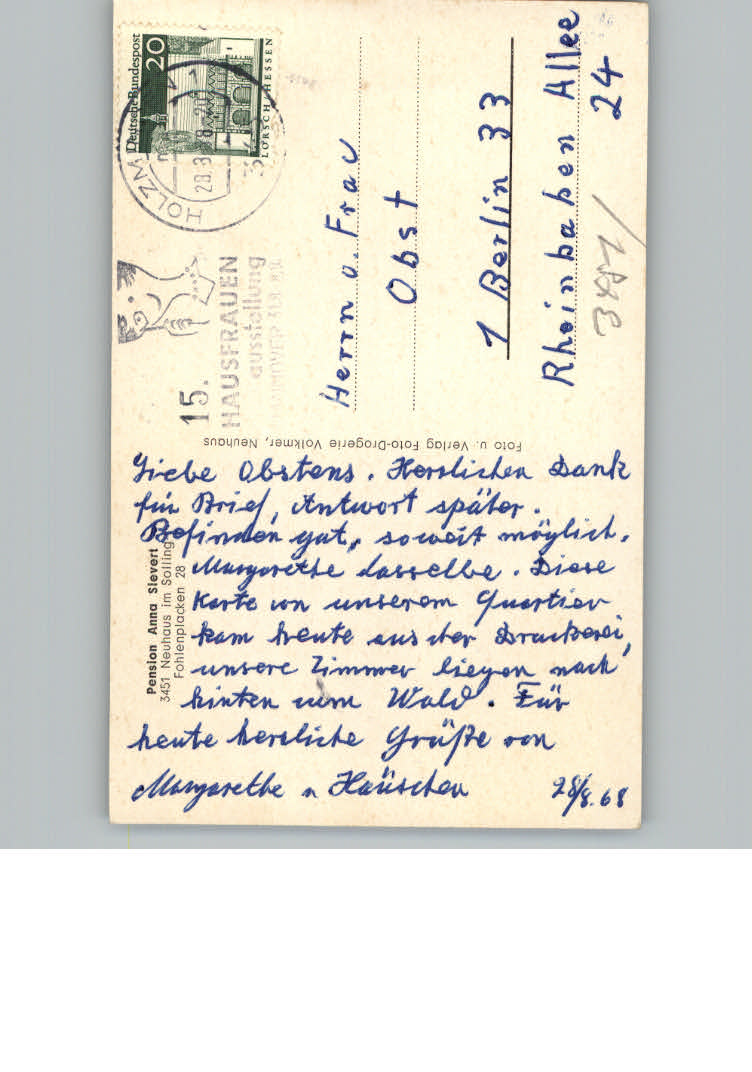 Deutsche Bundespost
20
LORSCH/HESSEN
HOLZM
28.8
15.
HAUSFRAUEN
ausstellung
HANNOVER
Herrn u. Frau
Obst
1 Berlin 33
Rheinbaben Allee
24
Foto u. Verlag Foto-Drogerie Volkmer, Neuhaus
Pension Anna Sievert
3451 Neuhaus im Solling
Fohlenplacken 28
Liebe Obstens. Herzlichen Dank
für Brief, Antwort später.
Befinden gut, soweit möglich.
Margarethe dasselbe. Diese
Karte von unserem Quartier
kam heute aus der Druckerei,
unsere Zimmer liegen nach
hinten zum Wald. Für
heute herzliche Grüße von
Margarethe u Häuschen
28/8.68